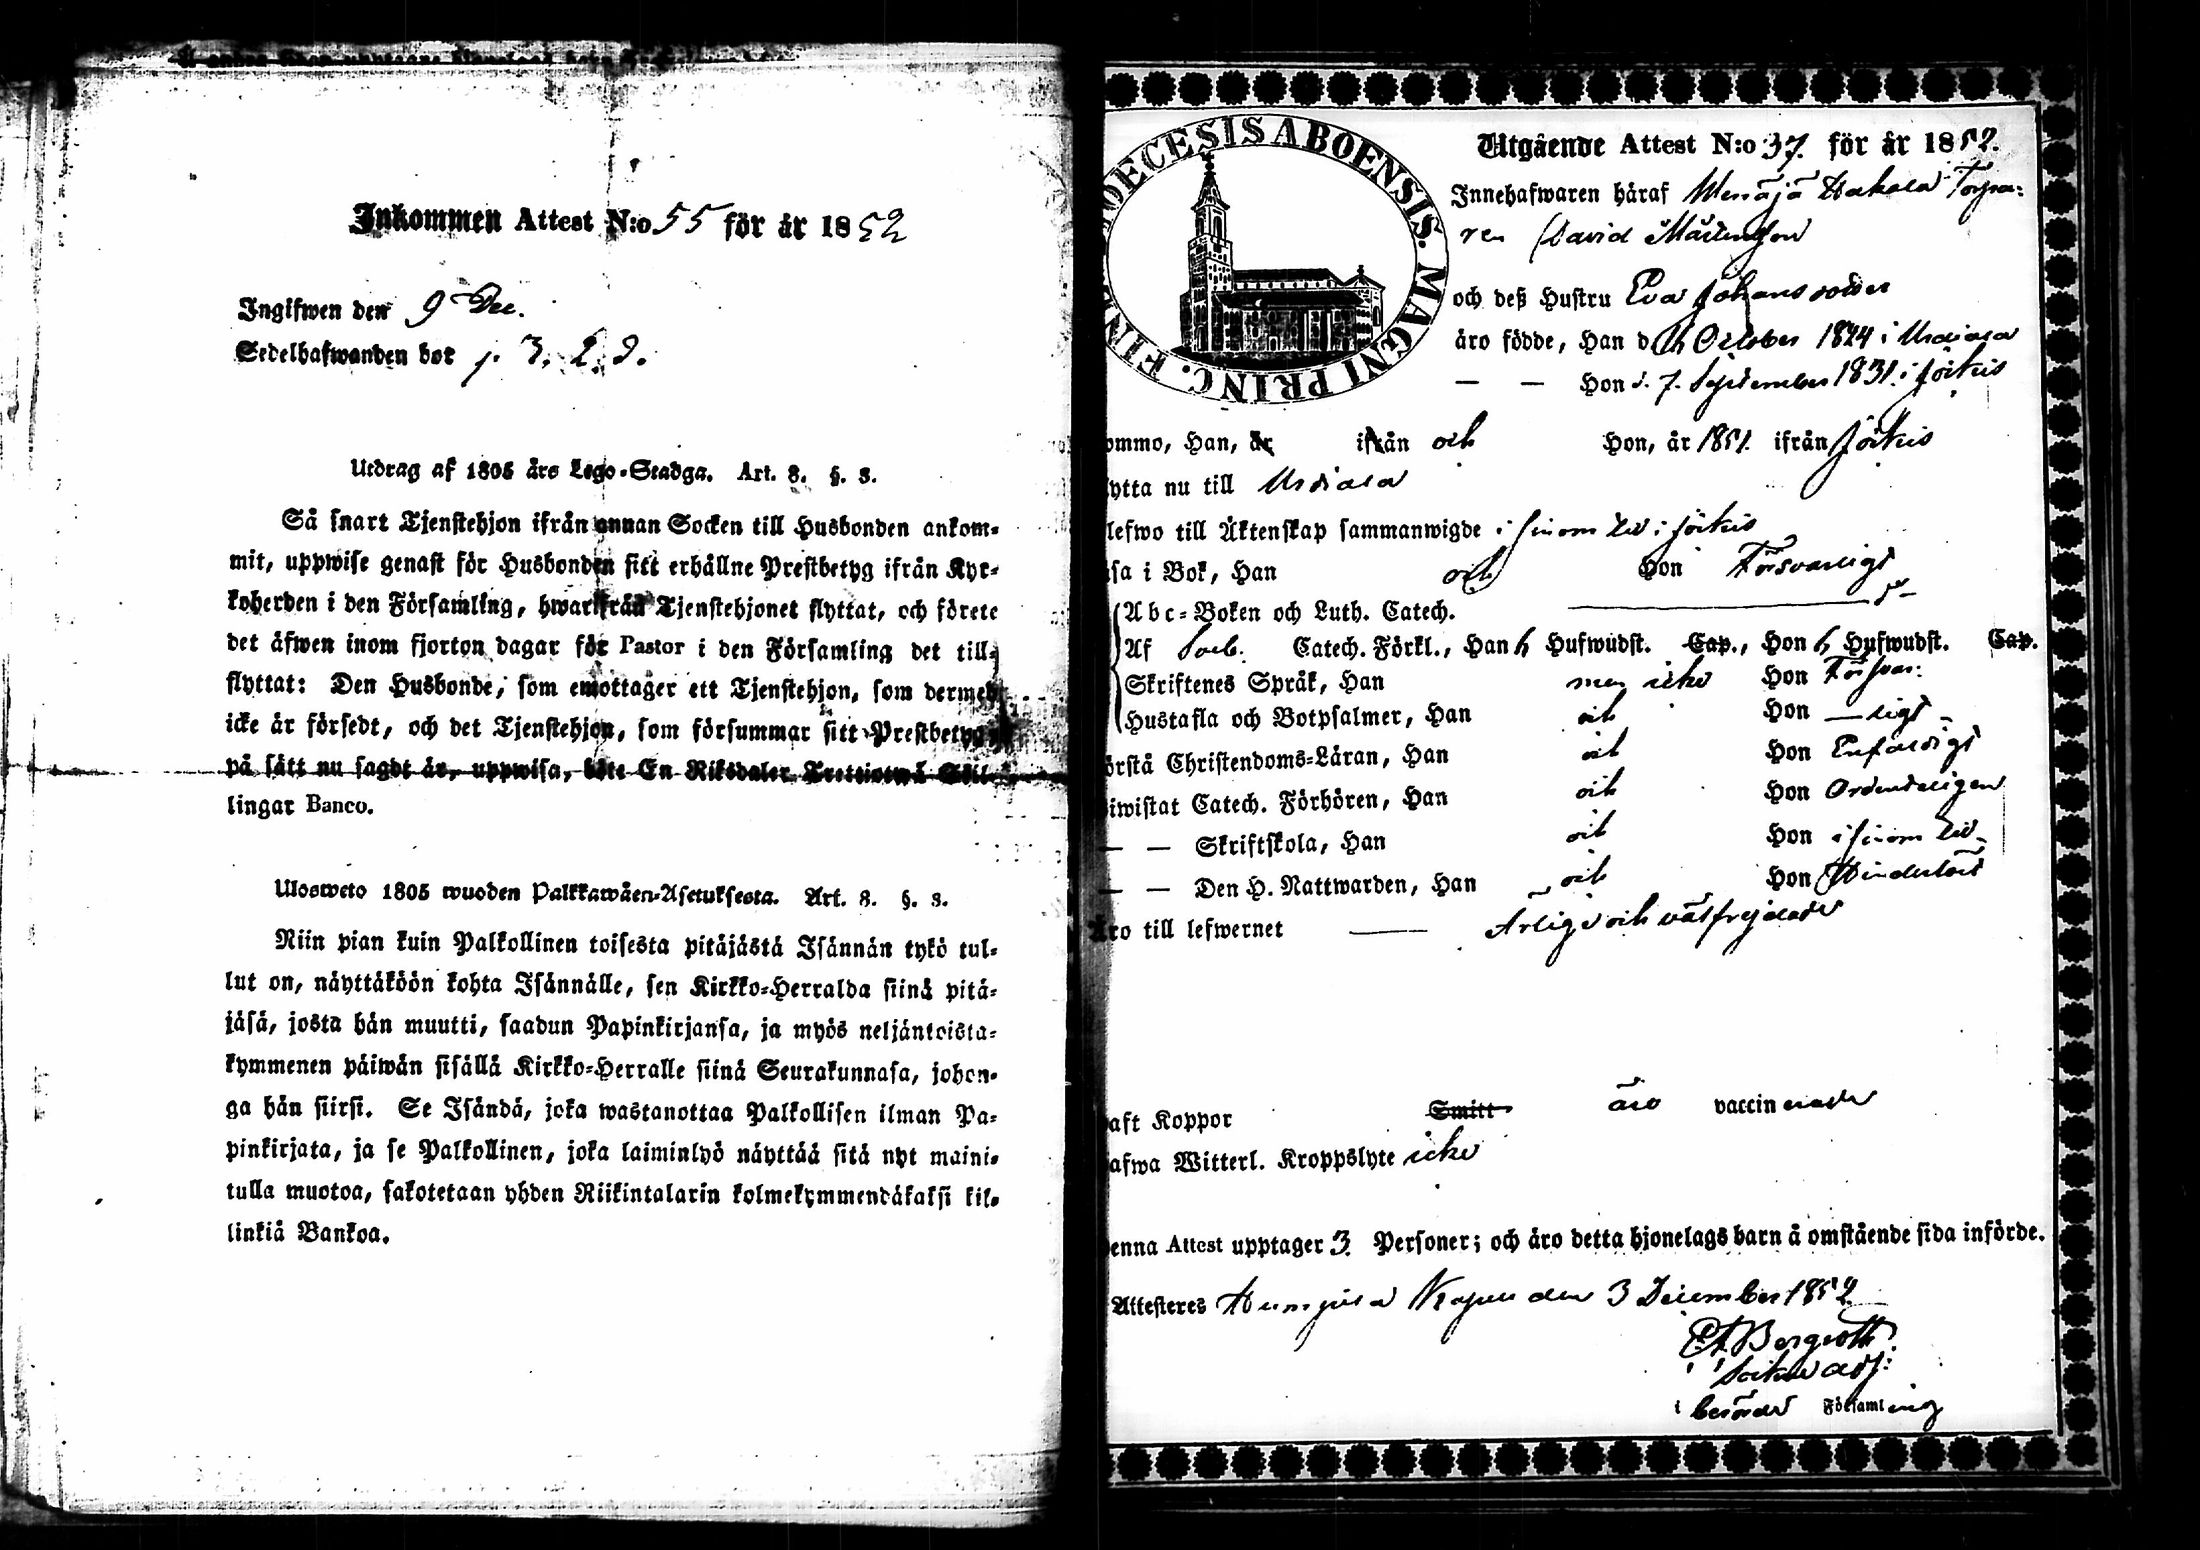 Inkommen Attest N:o 55 för år 1852
Ingifwen den 9 Dec.
Sedelhafwanden bor p. 3. 2. 9.
Utdrag af 1805 års Lego-Stadga. Art. 8. §. 3.
Så snart Tjenstehjon ifrån annan Socken till Husbonden ankom-
mit, uppwise genast för Husbonden sitt erhållne Prestbetyg ifrån Kyr-
koherden i den Församling, hwarifrån Tjenstehjonet flyttat, och förete
det äfwen inom fjorton dagar för Pastor i den Församling det till-
flyttat: Den Husbonde, som emottager ett Tjenstehjon, som dermed
icke är försedt, och det Tjenstehjon, som försummar sitt Prestbetyg
på sätt nu sagdt är, uppwisa, böte En Riksdaler Trettiotwå Skil-
lingar Banco.
Ulosweto 1805 wuoden Palkkawäen-Asetuksesta. Art. 8. §. 3.
Niin pian kuin Palkollinen toisesta pitäjästä Isännän tykö tul-
lut on, näyttäköön kohta Isännälle, sen Kirkko-Herralda siinä pitä-
jäsä, josta hän muutti, saadun Papinkirjansa, ja myös neljäntoista-
kymmenen päiwän sisällä Kirkko-Herralle siinä Seurakunnasa, johon-
ga hän siirsi. Se Isändä, joka wastanottaa Palkollisen ilman Pa-
pinkirjata, ja se Palkollinen, joka laiminlyö näyttää sitä nyt maini-
tulla muotoa, sakotetaan yhden Riikintalarin kolmekymmendäkaksi kil-
linkiä Bankoa.
DIOECESIS ABOENSIS. MAGNI PRINC. FINL.
Utgående Attest N:o 37. för år 1852.
Innehafwaren häraf Hakala Torpa-
ren David Mårtensson
och deß Hustru Eva Johansdotter
äro födde, Han d October 1824 i Urdiala
— — Hon d. 7. September 1831. i Jockis
ommo, Han, år ifrån och Hon, år 1851. ifrån Jockis
lytta nu till Urdiala
lefwo till Äktenskap sammanwigde i sinom tid i Jockis
äsa i Bok, Han och Hon Försvarligt
Abc-Boken och Luth. Catech.
Af Catech. Förkl., Han 6 Hufwudst. Cap., Hon 6 Hufwudst. Cap.
Skriftenes Språk, Han men icke Hon Försvar:
Hustafla och Botpsalmer, Han och Hon —ligt
örstå Christendoms-Läran, Han och Hon Enfaldigt
iwistat Catech. Förhören, Han och Hon Ordentligen
— — Skriftskola, Han och Hon i sinom tid
— — Den H. Nattwarden, Han och Hon Hinderlöst
Äro till lefwernet — Ärlige och välfrejdade
aft Koppor Smitt äro vaccinerade
afwa Witterl. Kroppslyte icke
enna Attest upptager 3 Personer; och äro detta hjonelags barn å omstående sida införde.
Attesteres Humppila Kapell den 3 December 1852
Bergroth
Sockne adj:
i berörde Församling